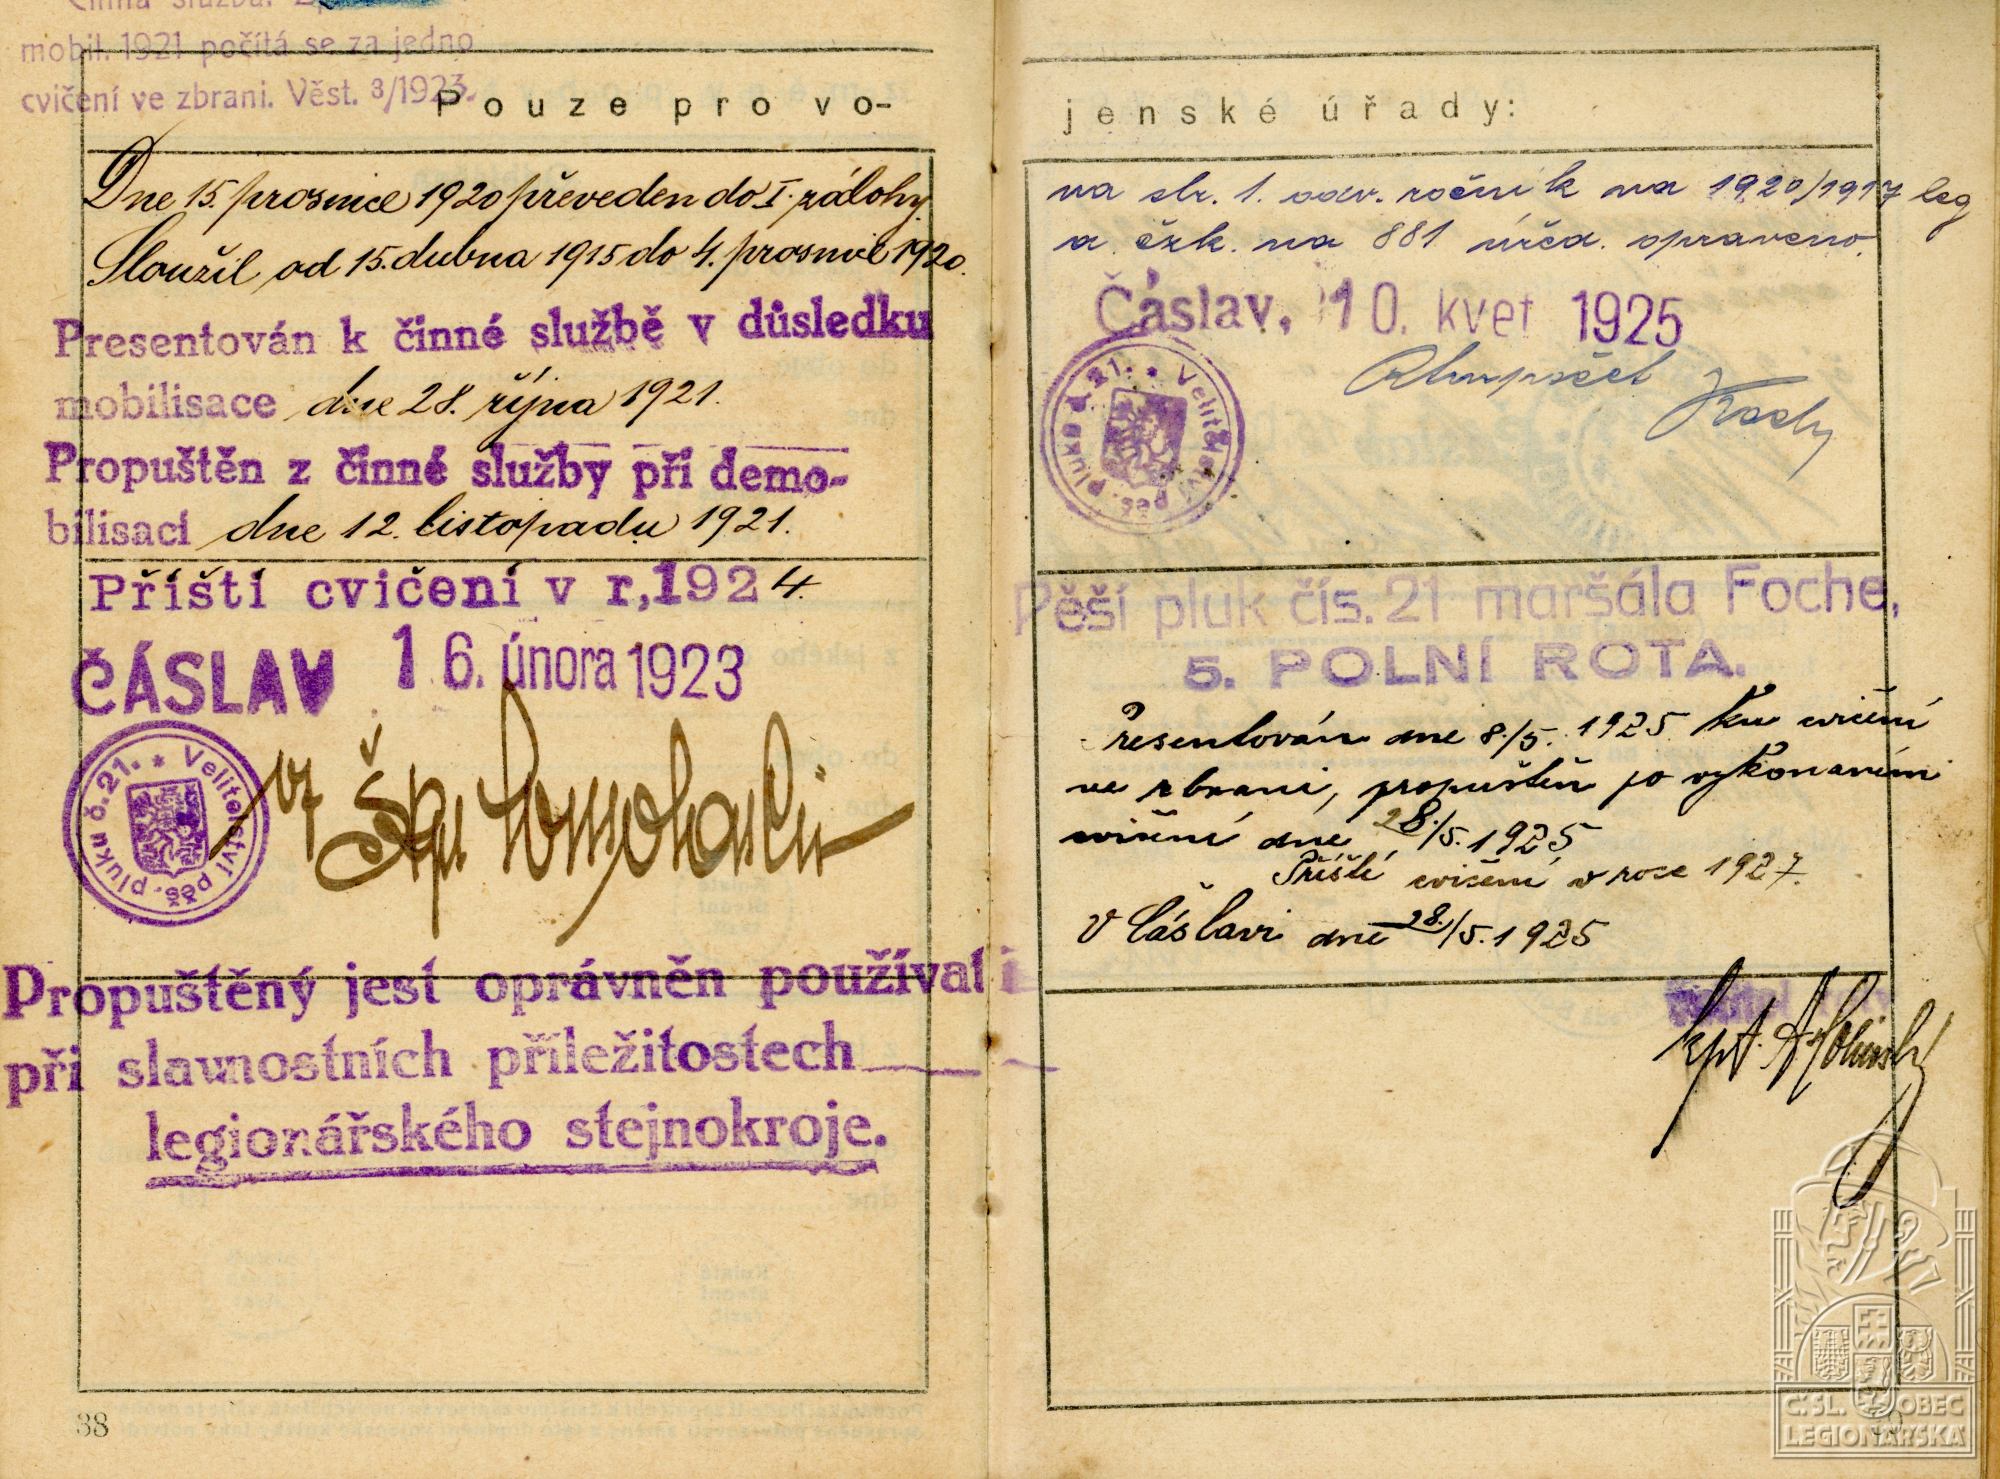 Činná služba.
mobil. 1921 počítá se za jedno
cvičení ve zbrani. Věst. 3/1923.
Pouze pro vo-
Dne 15. prosince 1920 převeden do I. zálohy.
Sloužil od 15. dubna 1915 do 4. prosince 1920.
Presentován k činné službě v důsledku
mobilisace dne 28. října 1921.
Propuštěn z činné služby při demo-
bilisací dne 12. listopadu 1921.
Příští cvičení v r, 1924.
ČÁSLAV 16. února 1923
Velitelství pěš. pluku č. 21. *
Škpt.
Propuštěný jest oprávněn používati
při slavnostních příležitostech
legionářského stejnokroje.
38
jenské úřady:
na str. 1. odv. ročník na 1920/1917 leg
a čsk. na 881 úřed. opraveno.
Čáslav, 10. kvet 1925
Velitelství pěš. pluku č. 21. *
Pěší pluk čís. 21 maršála Foche,
5. POLNÍ ROTA.
Presentován dne 8./5. 1925 ku cvičení
ve zbrani, propuštěn po vykonaném
cvičení dne 28./5. 1925
Příští cvičení v roce 1927.
V Čáslavi dne 28./5. 1925
kpt.
Č. SL. OBEC
LEGIONÁŘSKÁ